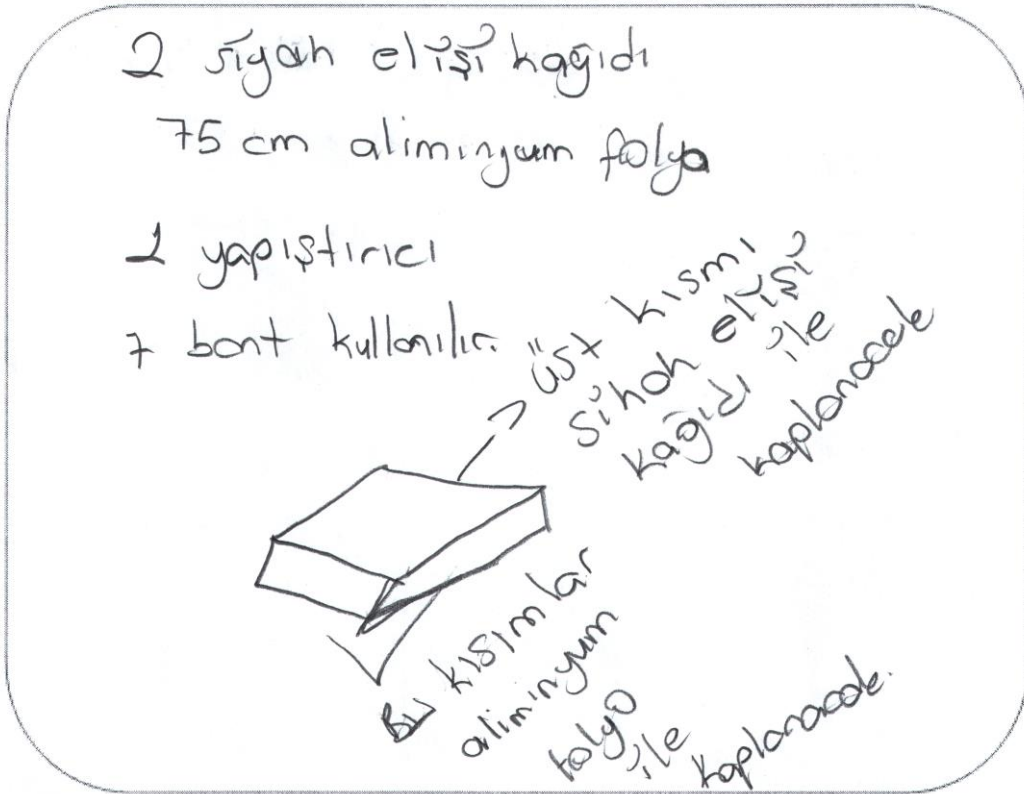 2 siyah elişi kağıdı
75 cm aliminyum folyo
1 yapıştırıcı
7 bant kullanılır.
üst kısmı
sihah elişi
kağıdı ile
kaplanacak
Bu kısımlar
aliminyum
folyo
ile
kaplanacak.